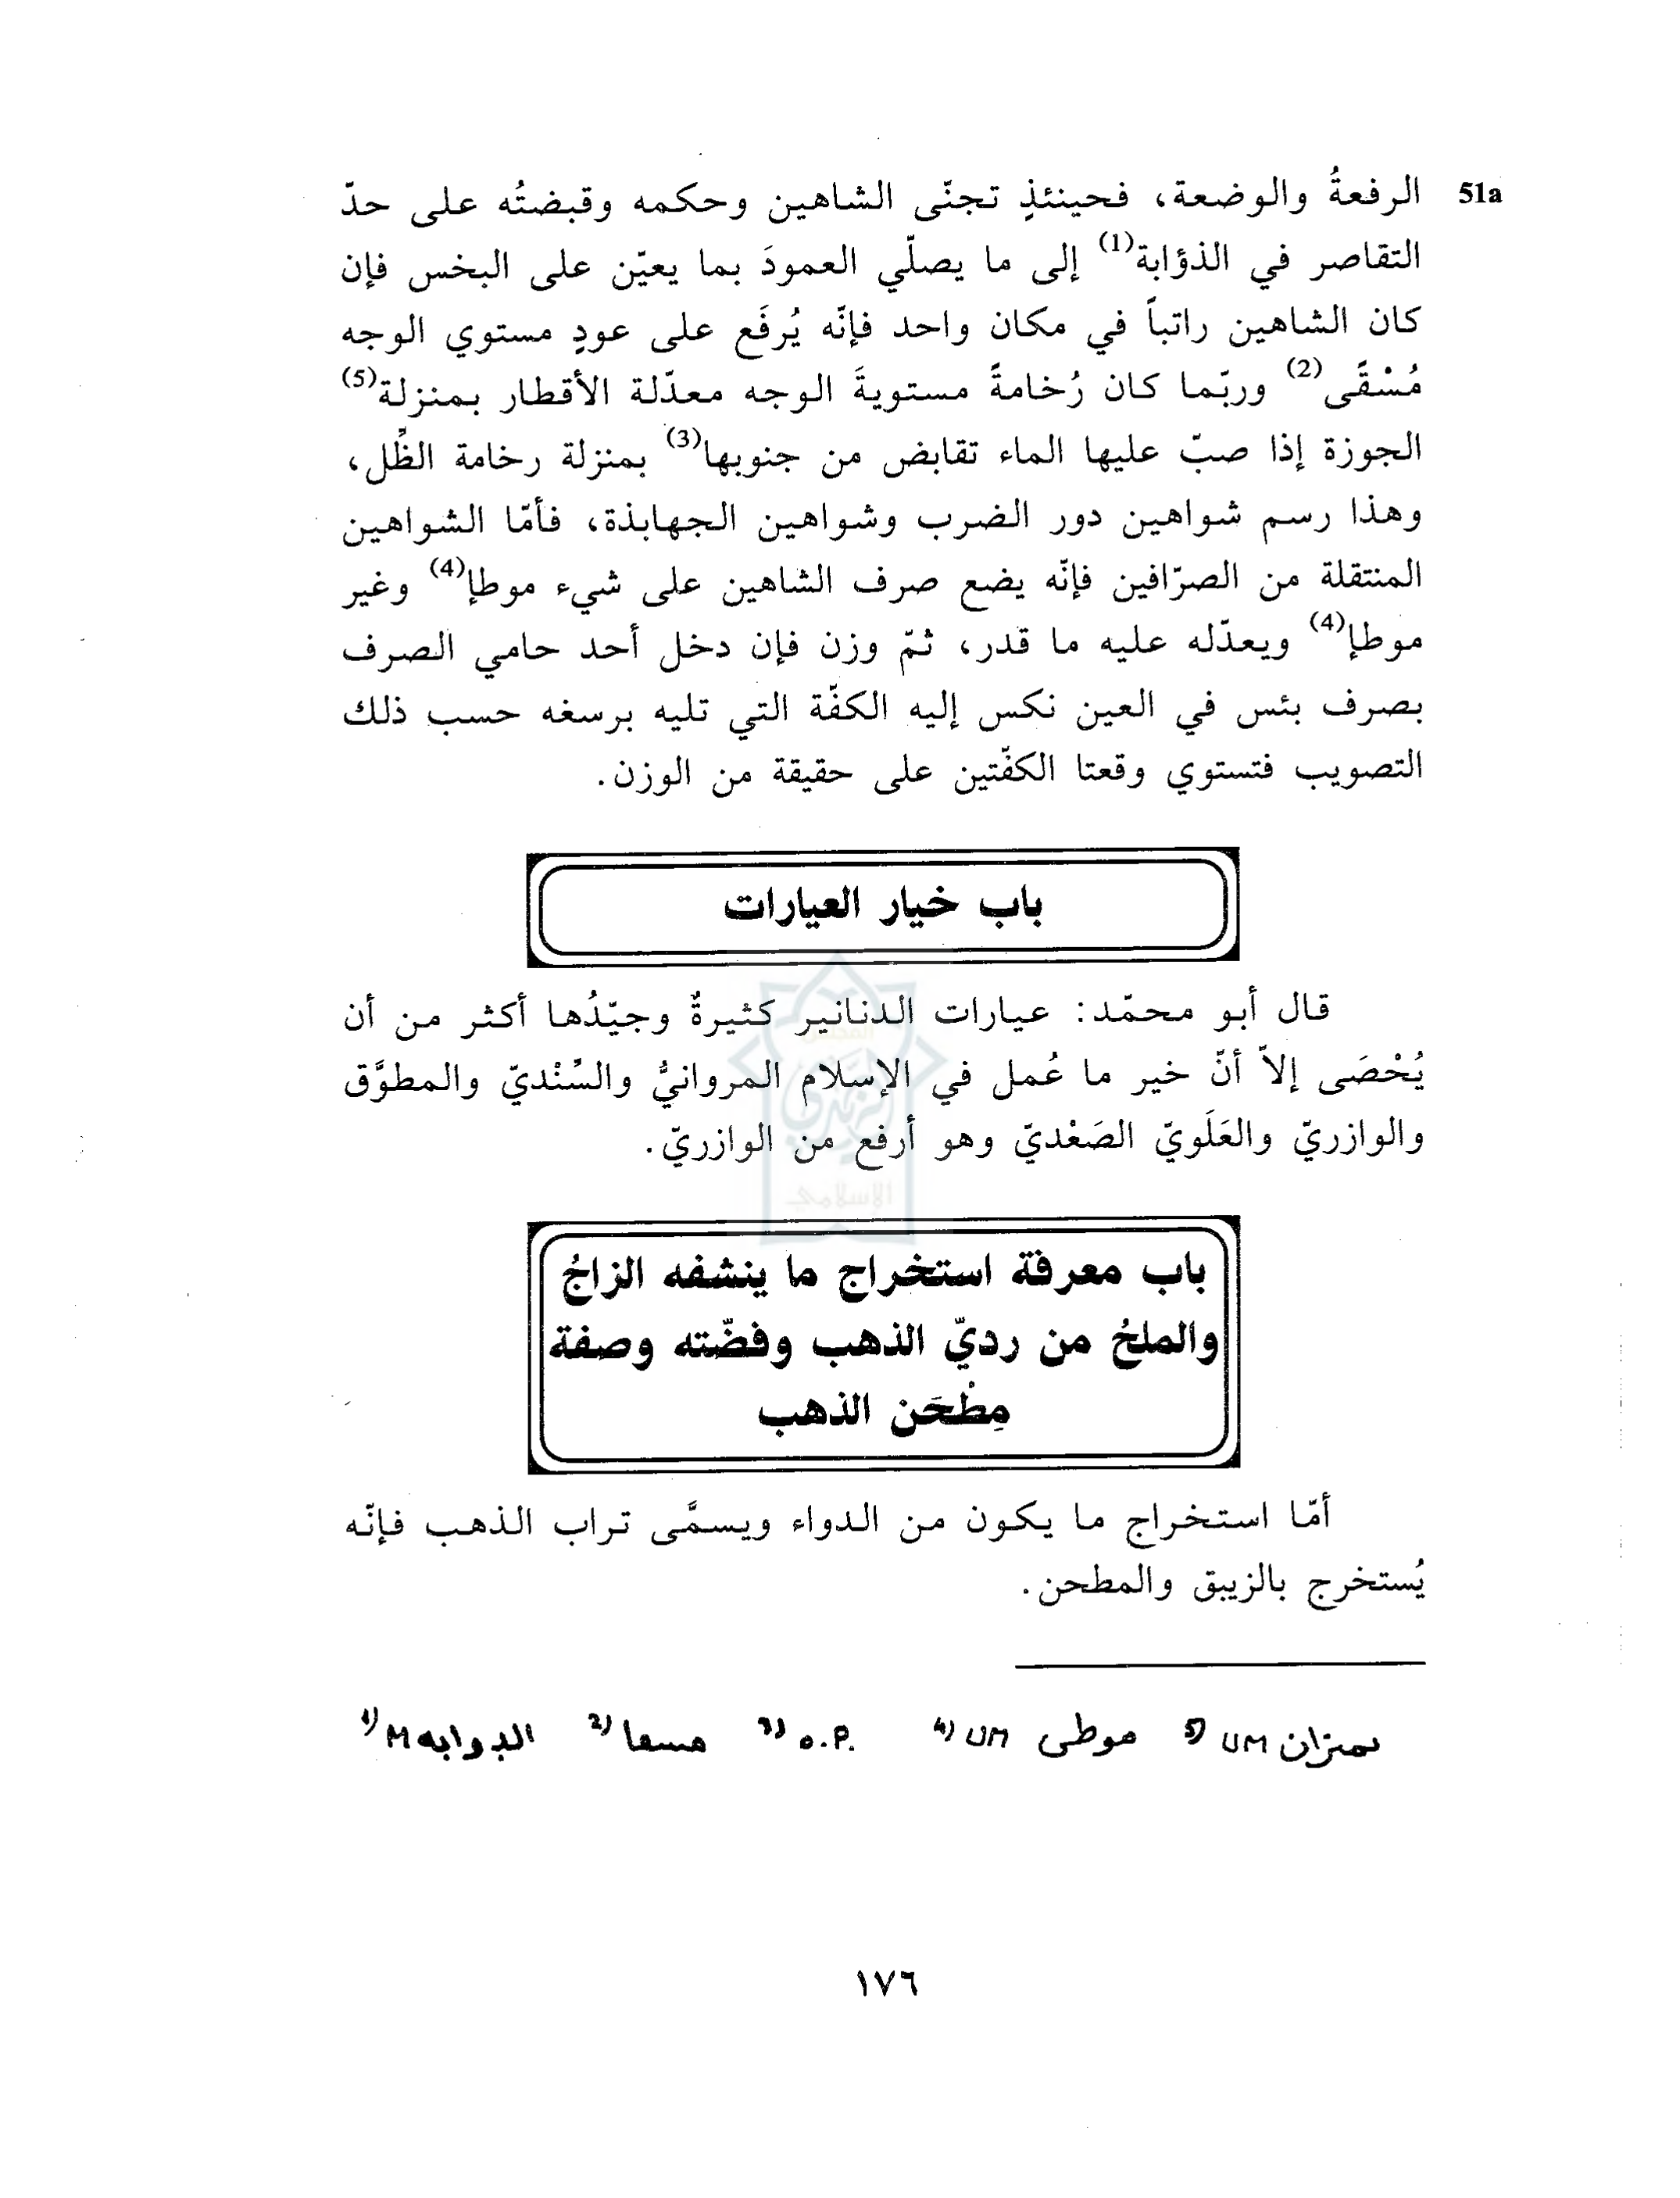 51a الرفعةُ والوضعة، فحينئذٍ تجنّى الشاهين وحكمه وقبضتُه على حدّ
التقاصر في الذؤابة(1) إلى ما يصلّي العمودَ بما يعيّن على البخس فإن
كان الشاهين راتباً في مكان واحد فإنّه يُرفَع على عودٍ مستوي الوجه
مُسْقًى(2) وربّما كان رُخامةً مستويةَ الوجه معدّلة الأقطار بمنزلة(5)
الجوزة إذا صبّ عليها الماء تقابض من جنوبها(3) بمنزلة رخامة الظِّل،
وهذا رسم شواهين دور الضرب وشواهين الجهابذة، فأمّا الشواهين
المنتقلة من الصرّافين فإنّه يضع صرف الشاهين على شيء موطإ(4) وغير
موطإ(4) ويعدّله عليه ما قدر، ثمّ وزن فإن دخل أحد حامي الصرف
بصرف بئس في العين نكس إليه الكفّة التي تليه برسغه حسب ذلك
التصويب فتستوي وقعتا الكفّتين على حقيقة من الوزن.
باب خيار العيارات
قال أبو محمّد: عيارات الدنانير كثيرةٌ وجيّدُها أكثر من أن
يُحْصَى إلاّ أنّ خير ما عُمل في الإسلام المروانيُّ والسِّنْديّ والمطوَّق
والوازريّ والعَلَويّ الصَعْديّ وهو أرفع من الوازريّ.
باب معرفة استخراج ما ينشفه الزاجُ
والملحُ من رديّ الذهب وفضّته وصفة
مِطْحَن الذهب
أمّا استخراج ما يكون من الدواء ويسمَّى تراب الذهب فإنّه
يُستخرج بالزيبق والمطحن.
1) M الدوابه 2) مسعا 3) o.P. 4) UM موطى 5) UM بميزان
١٧٦